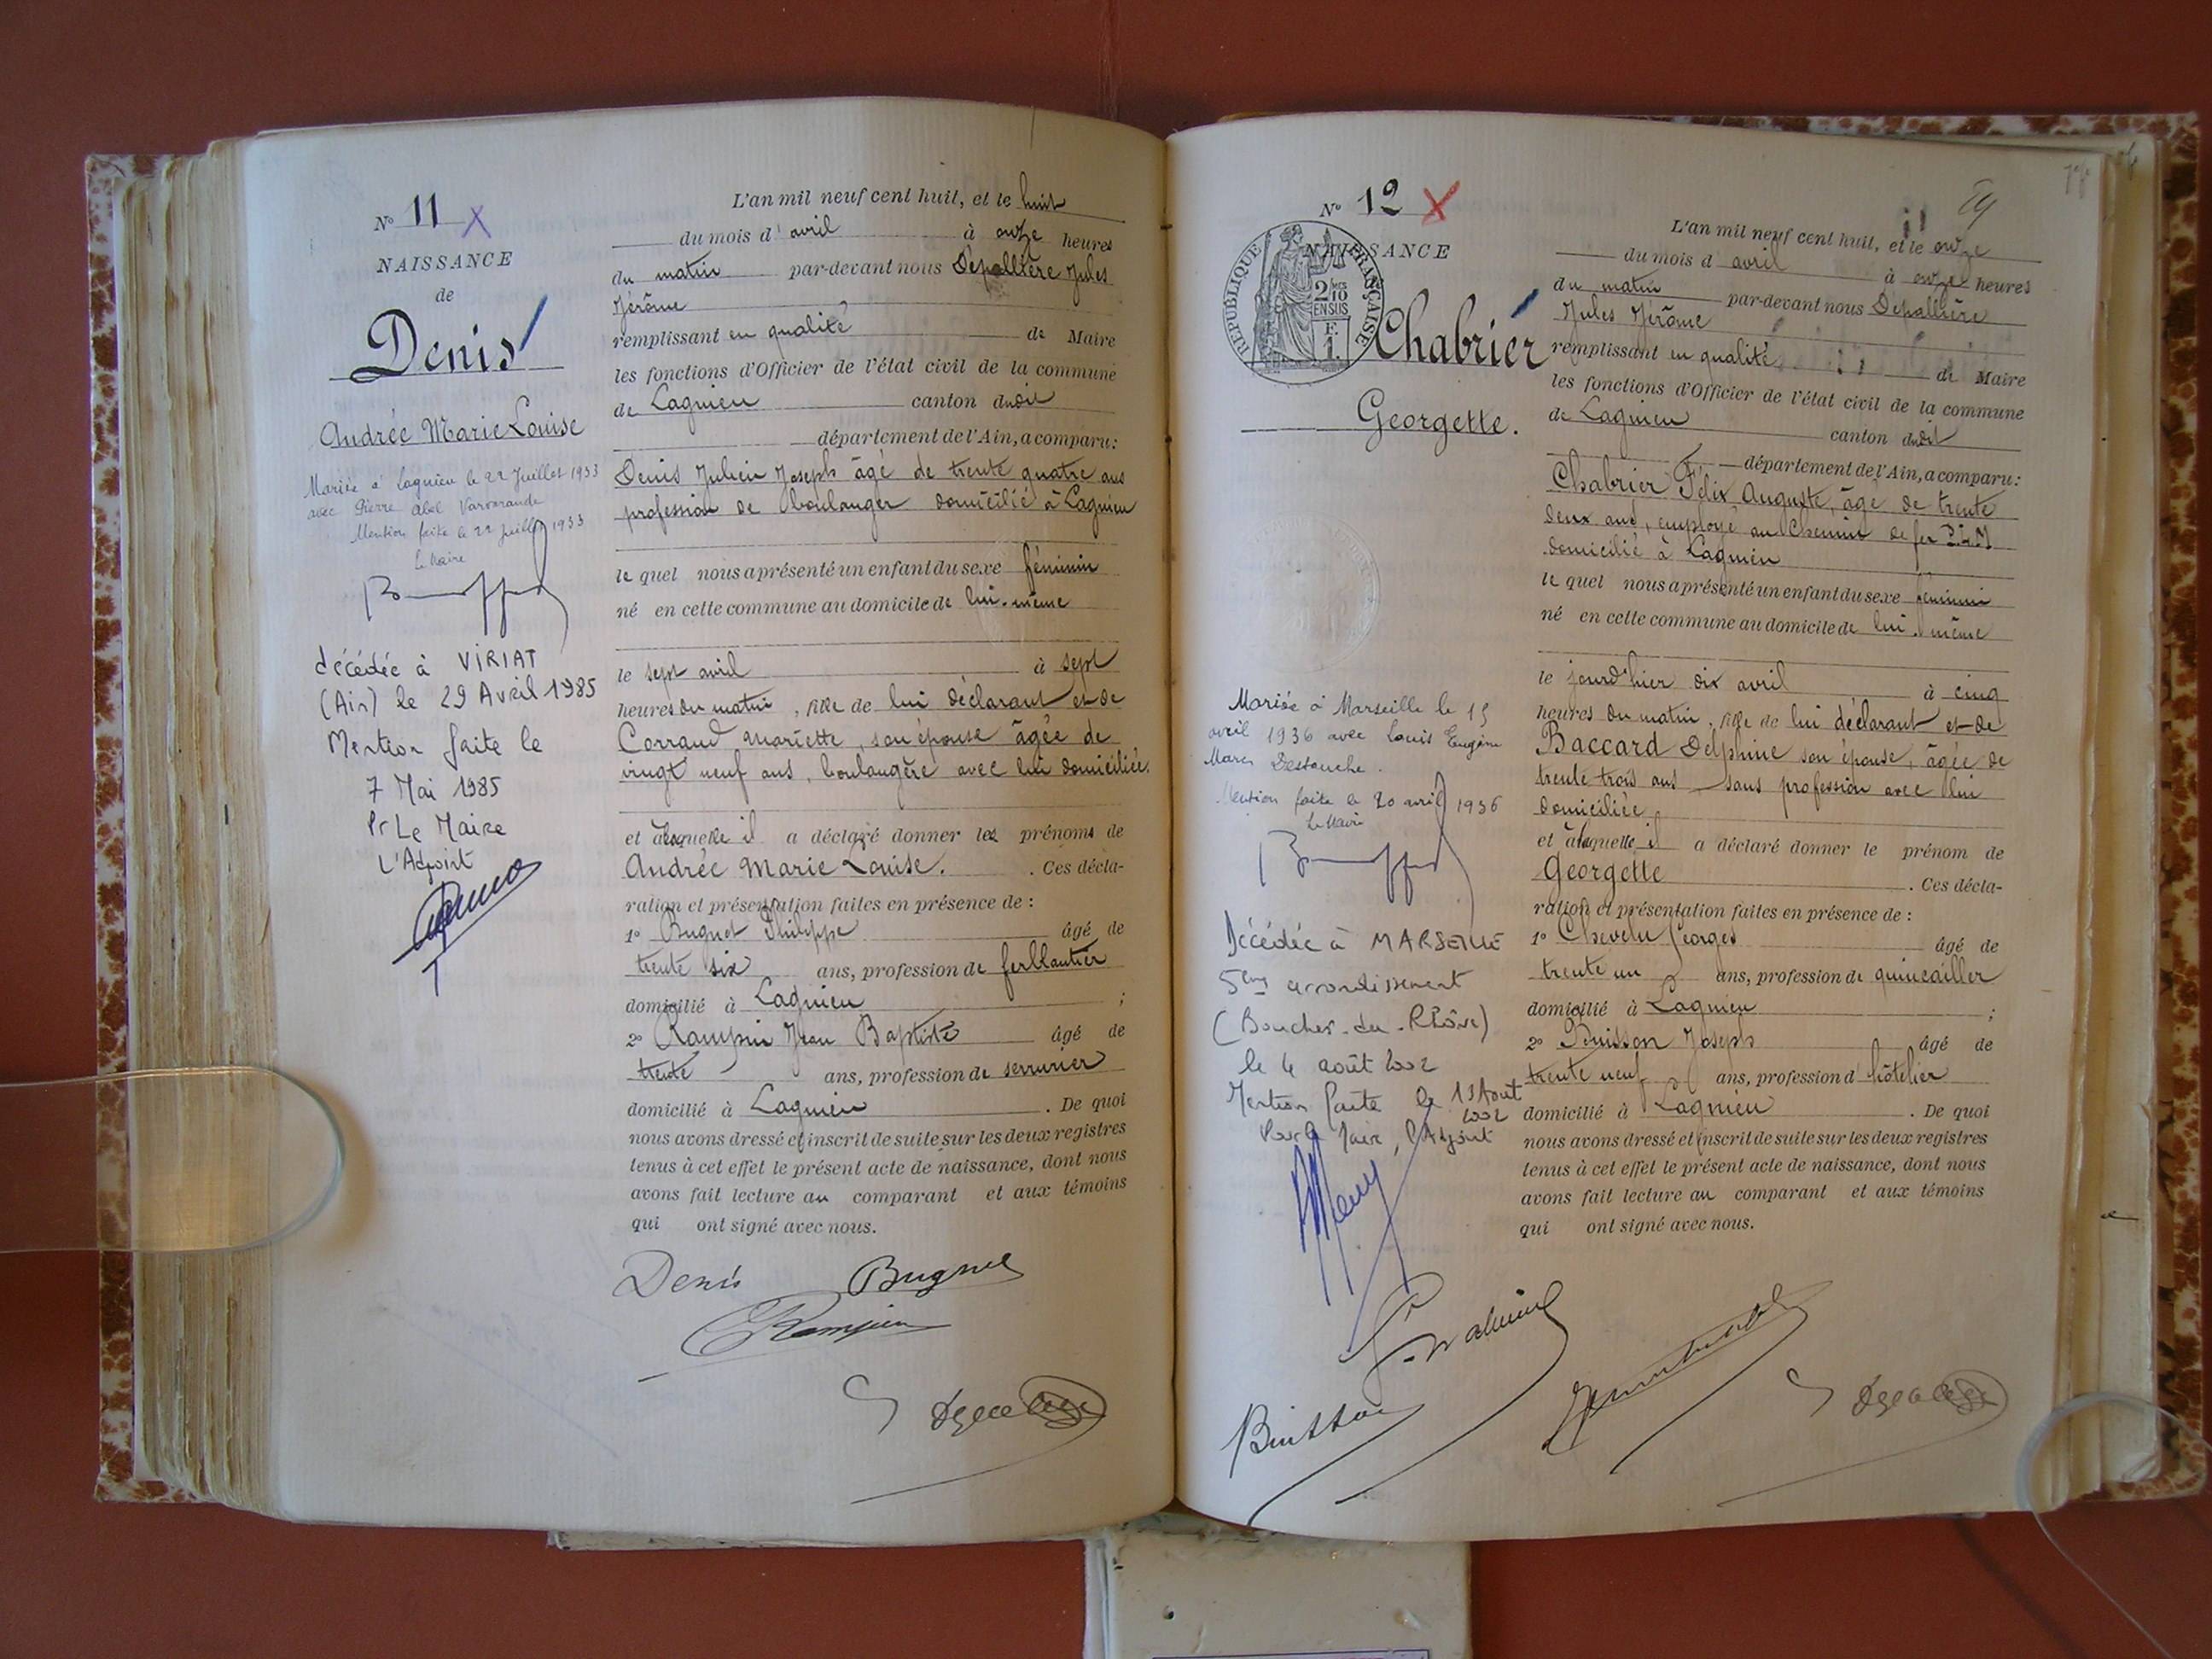 N° 11 X
NAISSANCE
de
Denis
Andrée Marie Louise
Mariée à Lagnieu le 22 Juillet 1933
avec Pierre Abel Varvarande
Mention faite le 22 juillet 1933
Le Maire
décédée à VIRIAT
(Ain) le 29 Avril 1985
Mention faite le
7 Mai 1985
Pr Le Maire
L'Adjoint
L'an mil neuf cent huit, et le huit
du mois d'avril à onze heures
du matin par-devant nous Depallière Jules
Jérôme
remplissant en qualité de Maire
les fonctions d'Officier de l'état civil de la commune
de Lagnieu canton dudit
département de l'Ain, a comparu:
Denis Julien Joseph âgé de trente quatre ans
profession de boulanger domicilié à Lagnieu
le quel nous a présenté un enfant du sexe féminin
né en cette commune au domicile de lui-même
le sept avril à sept
heures du matin, fille de lui déclarant et de
Corraud Mariette, son épouse âgée de
vingt neuf ans, boulangère avec lui domiciliée.
et à laquelle il a déclaré donner les prénoms de
Andrée Marie Louise. . Ces décla-
ration et présentation faites en présence de :
1° Bugnet Philippe âgé de
trente six ans, profession de ferblantier
domicilié à Lagnieu ;
2° Rampin Jean Baptiste âgé de
trente ans, profession de serrurier
domicilié à Lagnieu . De quoi
nous avons dressé et inscrit de suite sur les deux registres
tenus à cet effet le présent acte de naissance, dont nous
avons fait lecture au comparant et aux témoins
qui ont signé avec nous.
Denis Bugnet
Rampin
N° 12 X
NAISSANCE
RÉPUBLIQUE FRANÇAISE
2/10
EN SUS
F.
1.
Chabrier
Georgette.
Mariée à Marseille le 15
avril 1936 avec Louis Eugène
Marc Destouche.
Mention faite le 20 avril 1936
Le Maire
Décédée à MARSEILLE
5ème arrondissement
(Bouches-du-Rhône)
le 4 août 2002
Mention faite le 13 Août
2002
Pour le Maire, l'Adjoint
L'an mil neuf cent huit, et le onze
du mois d avril à onze heures
du matin par-devant nous Depallière
Jules Jérôme
remplissant en qualité de Maire
les fonctions d'Officier de l'état civil de la commune
de Lagnieu canton dudit
département de l'Ain, a comparu:
Chabrier Félix Auguste, âgé de trente
deux ans, employé au Chemin de fer P.L.M
domicilié à Lagnieu
le quel nous a présenté un enfant du sexe féminin
né en cette commune au domicile de lui-même
le jourd'hier dix avril à cinq
heures du matin, fille de lui déclarant et de
Baccard Delphine son épouse, âgée de
trente trois ans sans profession avec lui
domiciliée
et à laquelle il a déclaré donner le prénom de
Georgette . Ces décla-
ration et présentation faites en présence de :
1° Chevelu Georges âgé de
trente un ans, profession de quincailler
domicilié à Lagnieu ;
2° Buisson Joseph âgé de
trente neuf ans, profession d'hôtelier
domicilié à Lagnieu . De quoi
nous avons dressé et inscrit de suite sur les deux registres
tenus à cet effet le présent acte de naissance, dont nous
avons fait lecture au comparant et aux témoins
qui ont signé avec nous.
Buisson